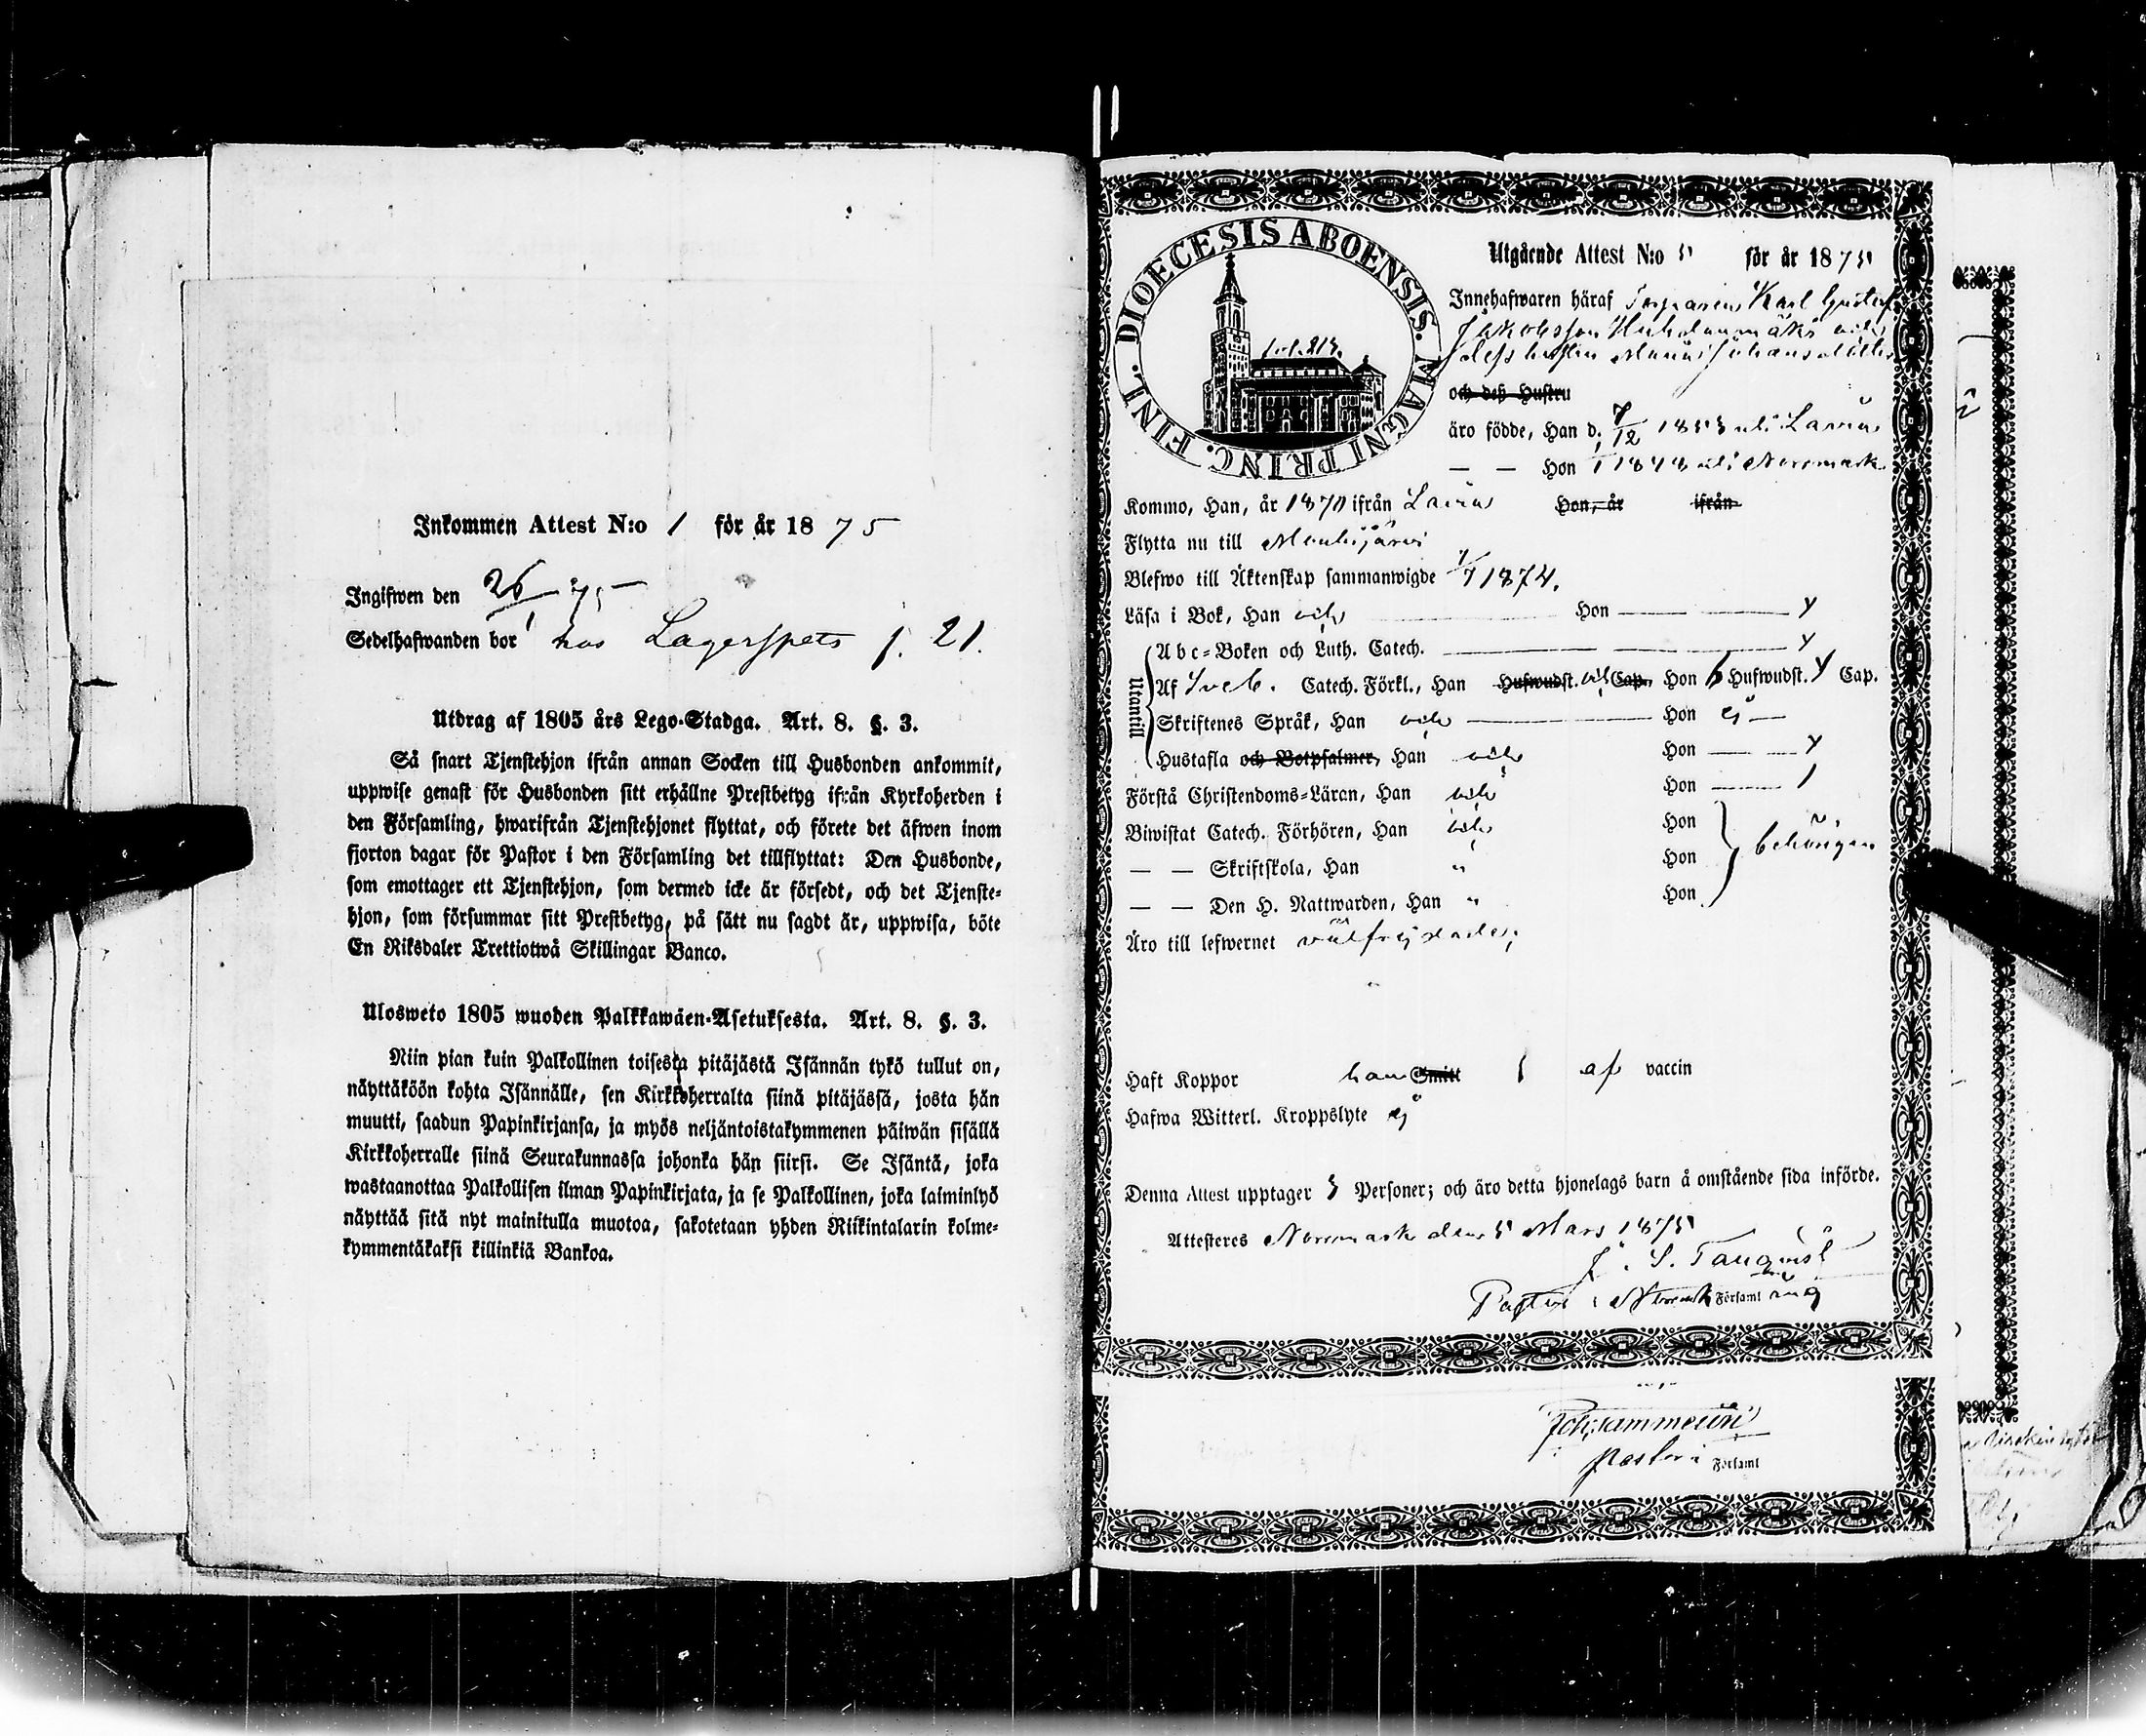 Inkommen Attest N:o 1 för år 1875
Ingifwen den 26/1 75
Sedelhafwanden bor hos Lagerspets f. 21.
Utdrag af 1805 års Lego-Stadga. Art. 8. §. 3.
Så snart Tjenstehjon ifrån annan Socken till Husbonden ankommit,
uppwise genast för Husbonden sitt erhållne Prestbetyg ifrån Kyrkoherden i
den Församling, hwarifrån Tjenstehjonet flyttat, och förete det äfwen inom
fjorton dagar för Pastor i den Församling det tillflyttat: Den Husbonde,
som emottager ett Tjenstehjon, som dermed icke är försedt, och det Tjenste-
hjon, som försummar sitt Prestbetyg, på sätt nu sagdt är, uppwisa, böte
En Riksdaler Trettiotwå Skillingar Banco.
Ulosweto 1805 wuoden Palkkawäen-Asetuksesta. Art. 8. §. 3.
Niin pian kuin Palkollinen toisesta pitäjästä Isännän tykö tullut on,
näyttäköön kohta Isännälle, sen Kirkkoherralta siinä pitäjässä, josta hän
muutti, saadun Papinkirjansa, ja myös neljäntoistakymmenen päiwän sisällä
Kirkkoherralle siinä Seurakunnassa johonka hän siirsi. Se Isäntä, joka
wastaanottaa Palkollisen ilman Papinkirjata, ja se Palkollinen, joka laiminlyö
näyttää sitä nyt mainitulla muotoa, sakotetaan yhden Riikintalarin kolme-
kymmentäkaksi killinkiä Bankoa.
DIOECESIS ABOENSIS. MAGNI PRINC. FINL.
Utgående Attest N:o 5 för år 1875
Innehafwaren häraf Karl Gustaf
Jakobsson och
dess hustru Maria Johansdotter
och deß Hustru
äro födde, Han d. 7/12 1853 i Lavia
— — Hon 1848 i Norrmark
Kommo, Han, år 1870 ifrån Lavia Hon, år ifrån
Flytta nu till Mouhijärwi
Blefwo till Äktenskap sammanwigde 1874.
Läsa i Bok, Han väl Hon
Utantill
Abc-Boken och Luth. Catech.
Af Sveb. Catech. Förkl., Han Hufwudst. Cap. Hon Hufwudst. Cap.
Skriftenes Språk, Han väl Hon ej
Hustafla och Botpsalmer, Han väl Hon
Förstå Christendoms-Läran, Han väl Hon
Biwistat Catech. Förhören, Han väl Hon
— — Skriftskola, Han " Hon behörigen
— — Den H. Nattwarden, Han " Hon
Äro till lefwernet välfrejdade;
Haft Koppor han Smitt af vaccin
Hafwa Witterl. Kroppslyte ej
Denna Attest upptager 3 Personer; och äro detta hjonelags barn å omstående sida införde.
Attesteres Norrmark den 5 Mars 1875
J. S. Tanqvist
Pastor i Norrmark Församling
Pastor i Församl